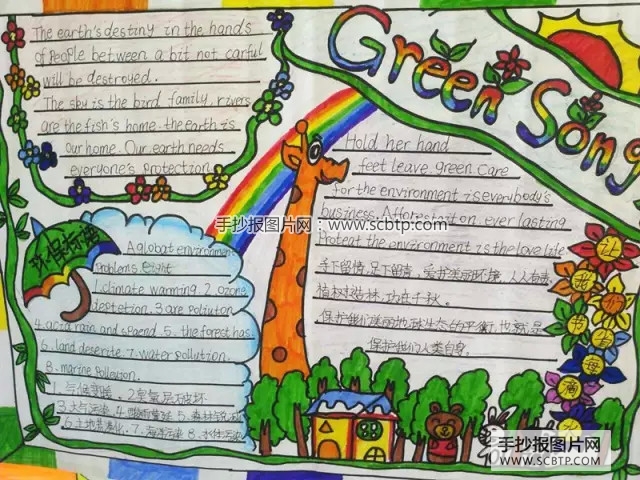 The earth's destiny in the hands
of People between a bit not carful
will be destroyed.
The sky is the bird family, rivers
are the fish's home. the earth is
our home. Our earth needs
everyone's protection
Green Song
Hold her hand
feet leave green care
for the environment is everybody's
business. Afforestation, ever lasting
Proteat the environment is the love life
手下留情,足下留青,爱护美丽环境,人人有责,
植树造林,功在千秋。
保护我们美丽地球生态的平衡,也就是
保护我们人类自身。
手抄报图片网:www.scbtp.com
环保标语
A global environment
problems eight
1.climate warming. 2 ozone
depletation. 3 are pollution
4. acid rain and spaend. 5. the forest has
6. land deserite. 7. water pollution.
8. marine pollution.
1.气候变暖、2臭氧层破坏
3.大气污染、4.酸雨蔓延 5.森林锐减
6土地荒漠化、7.海洋污染 8.水体污染
让
我
们
节
约
每
滴
水
手抄报图片网
WWW.SCBTP.COM